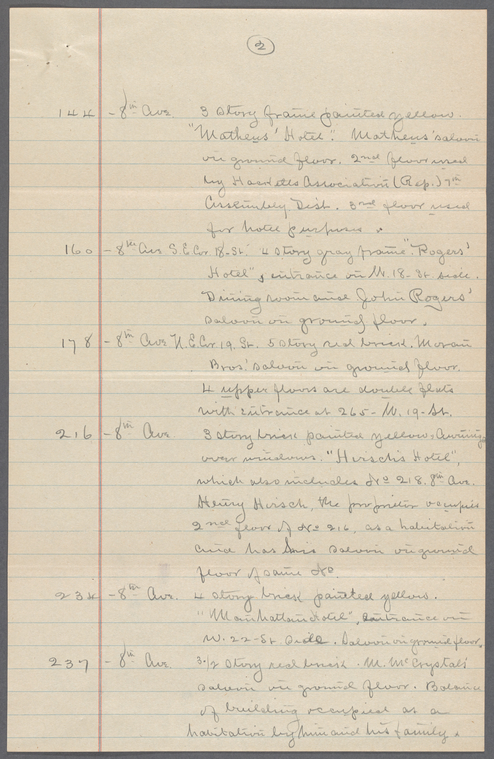 2
144 - 8th Ave. 3 story frame painted yellow.
"Matheus' Hotel". Matheus' saloon
on ground floor. 2nd floor used
by Hacketts Association (Rep.) 7th
Assembly Dist. 3rd floor used
for hotel purposes.
160 - 8th Ave S.E.Cor. 18-St. 4 story gray frame "Rogers'
Hotel", entrance on W. 18-St. side.
Dining room and John Rogers'
saloon on ground floor.
178 - 8th Ave N.E.Cor. 19.St. 5 story red brick. Moran
Bros.' saloon on ground floor.
4 upper floors are double flats
with entrance at 265-W. 19-St.
216 - 8th Ave. 3 story brick painted yellow. Awnings
over windows. "Hirsch's Hotel",
which also includes No 218. 8th Ave.
Henry Hirsch, the proprietor occupies
2nd floor of No 216, as a habitation
and has saloon on ground
floor of same No.
234 - 8th Ave. 4 story brick painted yellow.
"Manhattan Hotel", entrance on
W. 22-St side. Saloon on ground floor.
237 - 8th Ave. 3 1/2 story red brick. M. McCrystal's
saloon on ground floor. Balance
of building occupied as a
habitation by him and his family.